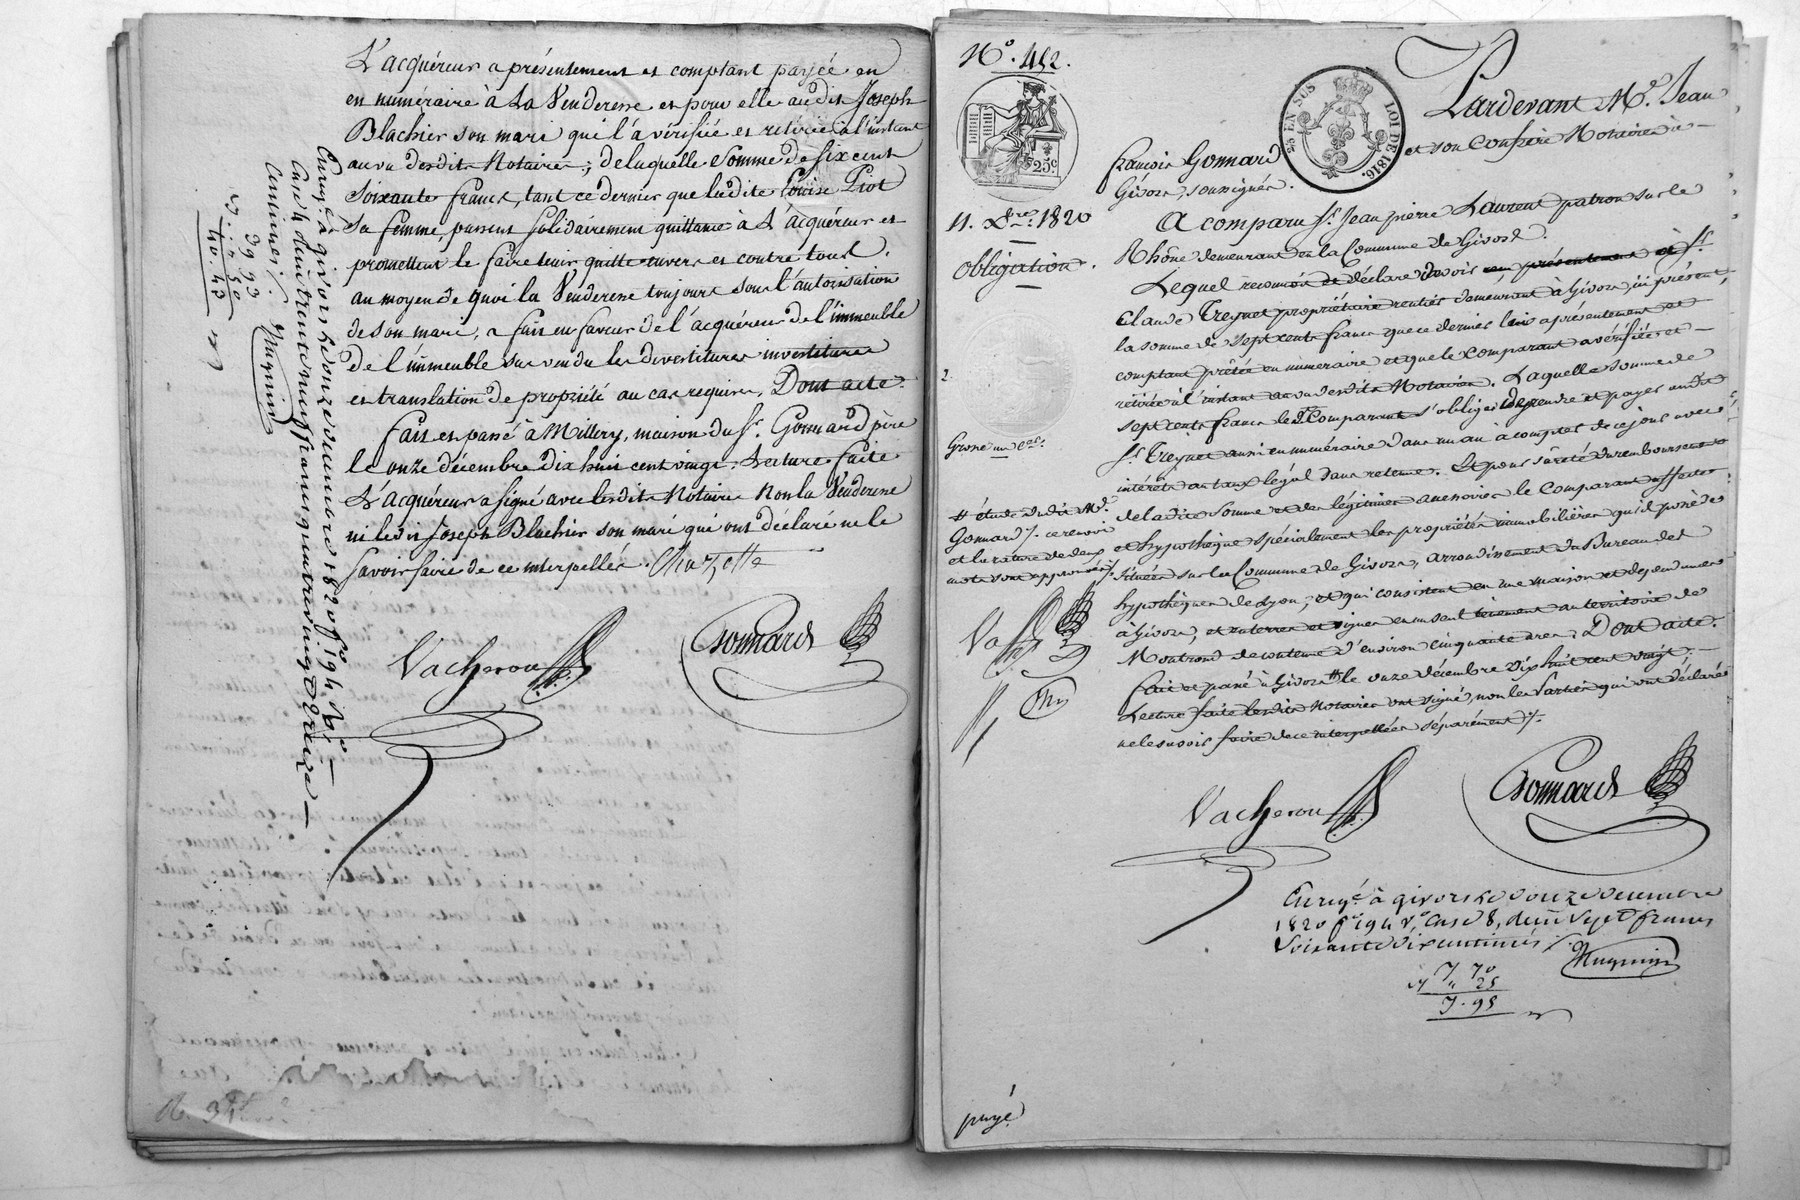 L'acquéreur a présentement et comptant payée en
en numéraire à La Venderesse et pour elle audit Joseph
Blachier son mari qui l'a vérifiée et retirée à l'instant
au vu desdits Notaires; de laquelle somme de six cent
soixante francs, tant ce dernier que ladite Louise Piot
sa femme, passent solidairement quittance à L'acquéreur et
promettent le faire tenir quitte envers et contre tous.
au moyen de quoi la Venderesse toujours sous l'autorisation
de son mari, a fait en faveur de l'acquéreur de l'immeuble
de l'immeuble sus vendu les divestitures investitures
et translation de propriété au cas requises, Dont acte.
fait et passé à Millery, maison du Sr. Gonnard père
le onze décembre dix huit cent vingt. Lecture faite
L'acquéreur a signé avec lesdits Notaires Non la Venderesse
ni ledit Joseph Blachier son mari qui ont déclaré ne le
savoir faire de ce interpellés. Chazette
Vacheron Gonnard
Enregé. à givors le douze décembre 1820 fo. 194 Ro.
Case 4, reçu trente neuf francs quatre vingt treize
Centimes
39 93
40. 43
No. 452.
25 EN SUS LOI DE 1816.
25c.
Pardevant Me. Jean
françois Gonnard et son Confrère Notaires à
Givors, soussignés.
11. Xbre. 1820
Obligation.
A comparu Sr. Jean pierre Laurent patron sur le
Rhône demeurant en la Commune de Givors.
Lequel reconnoit et déclare devoir présentement à Sr.
Claude Treynet propriétaire rentier demeurant à Givors, ici présent,
la somme de sept cents francs que ce dernier lui a présentement et
comptant prêtée en numéraire et que le Comparant a vérifiée et
retirée à l'instant au vu desdits Notaires. Laquelle somme de
sept cents francs le Comparant s'oblige de rendre et payer audit
Sr. Treynet aussi en numéraire dans un an à compter de ce jour avec
intérêts au taux légal sans retenue. Et pour sûreté du remboursement
de ladite somme et des légitimes accessoires le Comparant affecte
et hypothèque spécialement les propriétés immobilières qu'il possède
situées sur la Commune de Givors, arrondissement du Bureau des
hypothèques de Lyon, et qui consistent en une maison et dépendances
à Givors, et en terres et vignes en un seul tènement au territoire de
Montrond de contenue d'environ cinquante ares, Dont acte.
fait et passé à Givors # le onze décembre dix huit cent vingt.
Lecture faite lesdits Notaires ont signé, non les Parties qui ont déclaré
ne le savoir faire de ce interpellées séparément.
Grosse un rôle.
# étude dudit Me.
Gonnard. ce renvoi
et la rature de deux
mots sont approuvés.
Vacheron Gonnard
Enregé. à givors le douze décembre
1820 fo. 194 vo. Case 8, reçu sept francs
soixante dix centimes
7, 70
25
7. 95
payé